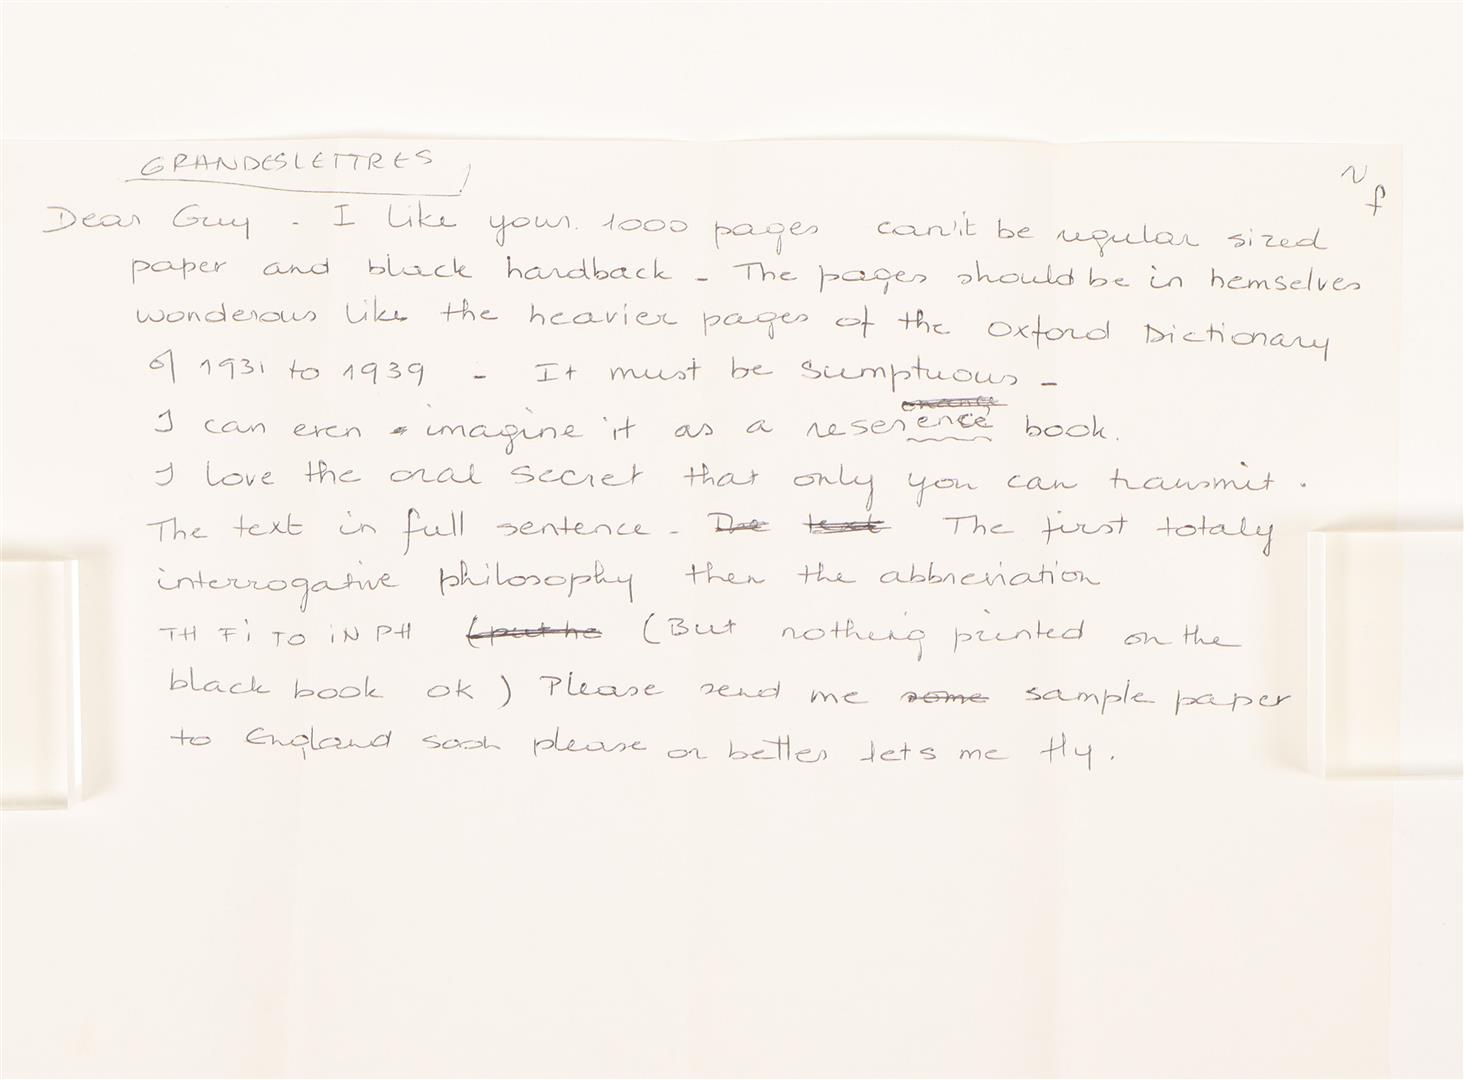 GRANDESLETTRES
N
f
Dear Guy - I like your 1000 pages can'it be regular sized
paper and black hardback - The pages should be in hemselves
wonderous like the heavier pages of the Oxford Dictionary
of 1931 to 1939 - It must be sumptuous -
I can even imagine it as a reserence book.
I love the oral secret that only you can transmit.
The text in full sentence - The text The first totaly
interrogative philosophy then the abbreviation
TH Fi TO iN PH (put he (But nothing printed on the
black book ok) Please send me some sample paper
to England soon please or better lets me fly.